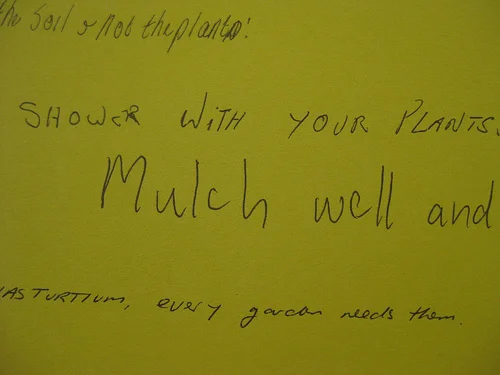 the Soil & Not the plants!
SHOWER WITH YOUR PLANTS.
Mulch well and
NASTURTIUM, every garden needs them.